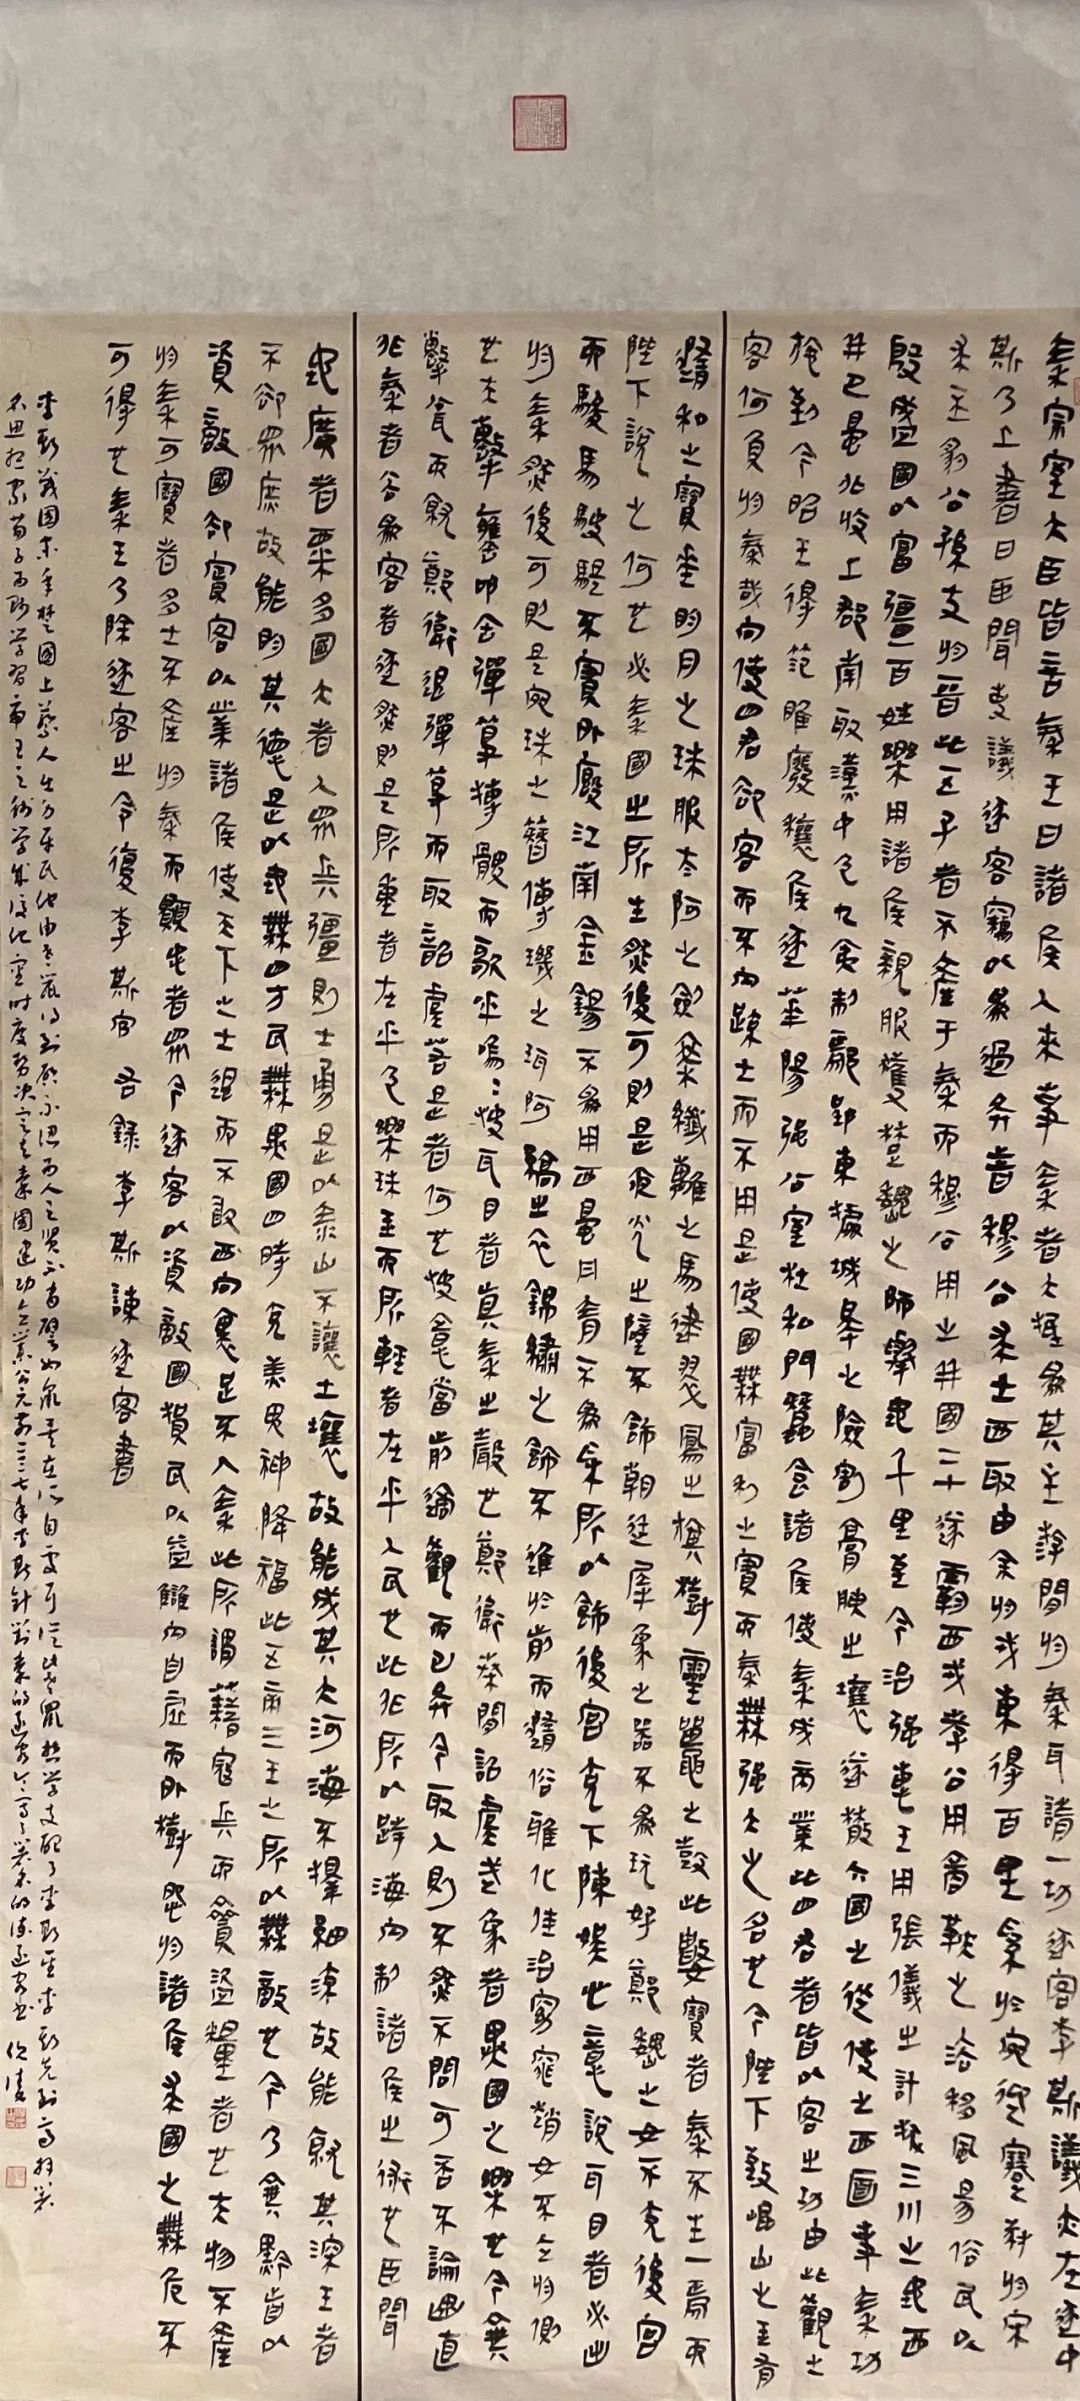 秦宗室大臣皆言秦王曰諸侯人來事秦者大抵為其主游間於秦耳請一切逐客李斯議亦在逐中
斯乃上書曰臣聞吏議逐客竊以為過矣昔穆公求士西取由余於戎東得百里奚於宛迎蹇叔於宋
求丕豹公孫支於晉此五子者不產于秦而穆公用之并國三十遂霸西戎孝公用商鞅之法移風易俗民以
殷盛國以富彊百姓樂用諸侯親服獲楚魏之師舉地千里至今治強惠王用張儀之計拔三川之地西
并巴蜀北收上郡南取漢中包九夷制鄢郢東據城皋之險割膏腴之壤遂散六國之從使之西面事秦功
施到今昭王得范雎廢穰侯逐華陽強公室杜私門蠶食諸侯使秦成帝業此四君者皆以客之功由此觀之
客何負於秦哉向使四君卻客而不內疏士而不用是使國無富利之實而秦無強大之名也今陛下致崐山之玉有
隨和之寶垂明月之珠服太阿之劍乘纖離之馬建翠鳳之旗樹靈鼉之鼓此數寶者秦不生一焉而
陛下說之何也必秦國之所生然後可則是夜光之璧不飾朝廷犀象之器不為玩好鄭魏之女不充後宮
而駿馬駃騠不實外廄江南金錫不為用西蜀丹青不為采所以飾後宮充下陳娛心意說耳目者必出
於秦然後可則是宛珠之簪傅璣之珥阿縞之衣錦繡之飾不進於前而隨俗雅化佳冶窈窕趙女不立於側
也夫擊甕叩缶彈箏搏髀而歌乎嗚嗚快耳目者真秦之聲也鄭衛桑間韶虞武象者異國之樂也今棄
擊甕而就鄭衛退彈箏而取韶虞若是者何也快意當前適觀而已矣今取人則不然不問可否不論曲直
非秦者去為客者逐然則是所重者在乎色樂珠玉而所輕者在乎人民也此非所以跨海內制諸侯之術也臣聞
地廣者粟多國大者人眾兵彊則士勇是以泰山不讓土壤故能成其大河海不擇細流故能就其深王者
不卻眾庶故能明其德是以地無四方民無異國四時充美鬼神降福此五帝三王之所以無敵也今乃棄黔首以
資敵國卻賓客以業諸侯使天下之士退而不敢西向裹足不入秦此所謂藉寇兵而齎盜糧者也夫物不產
於秦可寶者多士不產於秦而願忠者眾今逐客以資敵國損民以益讎內自虛而外樹怨於諸侯求國之無危不
可得也秦王乃除逐客之令復李斯官 右錄李斯諫逐客書
李斯戰國末年楚國上蔡人
學習帝王之術學成後 秦國建功立業公元前二三七年李斯針對秦的逐客令寫了著名的諫逐客書